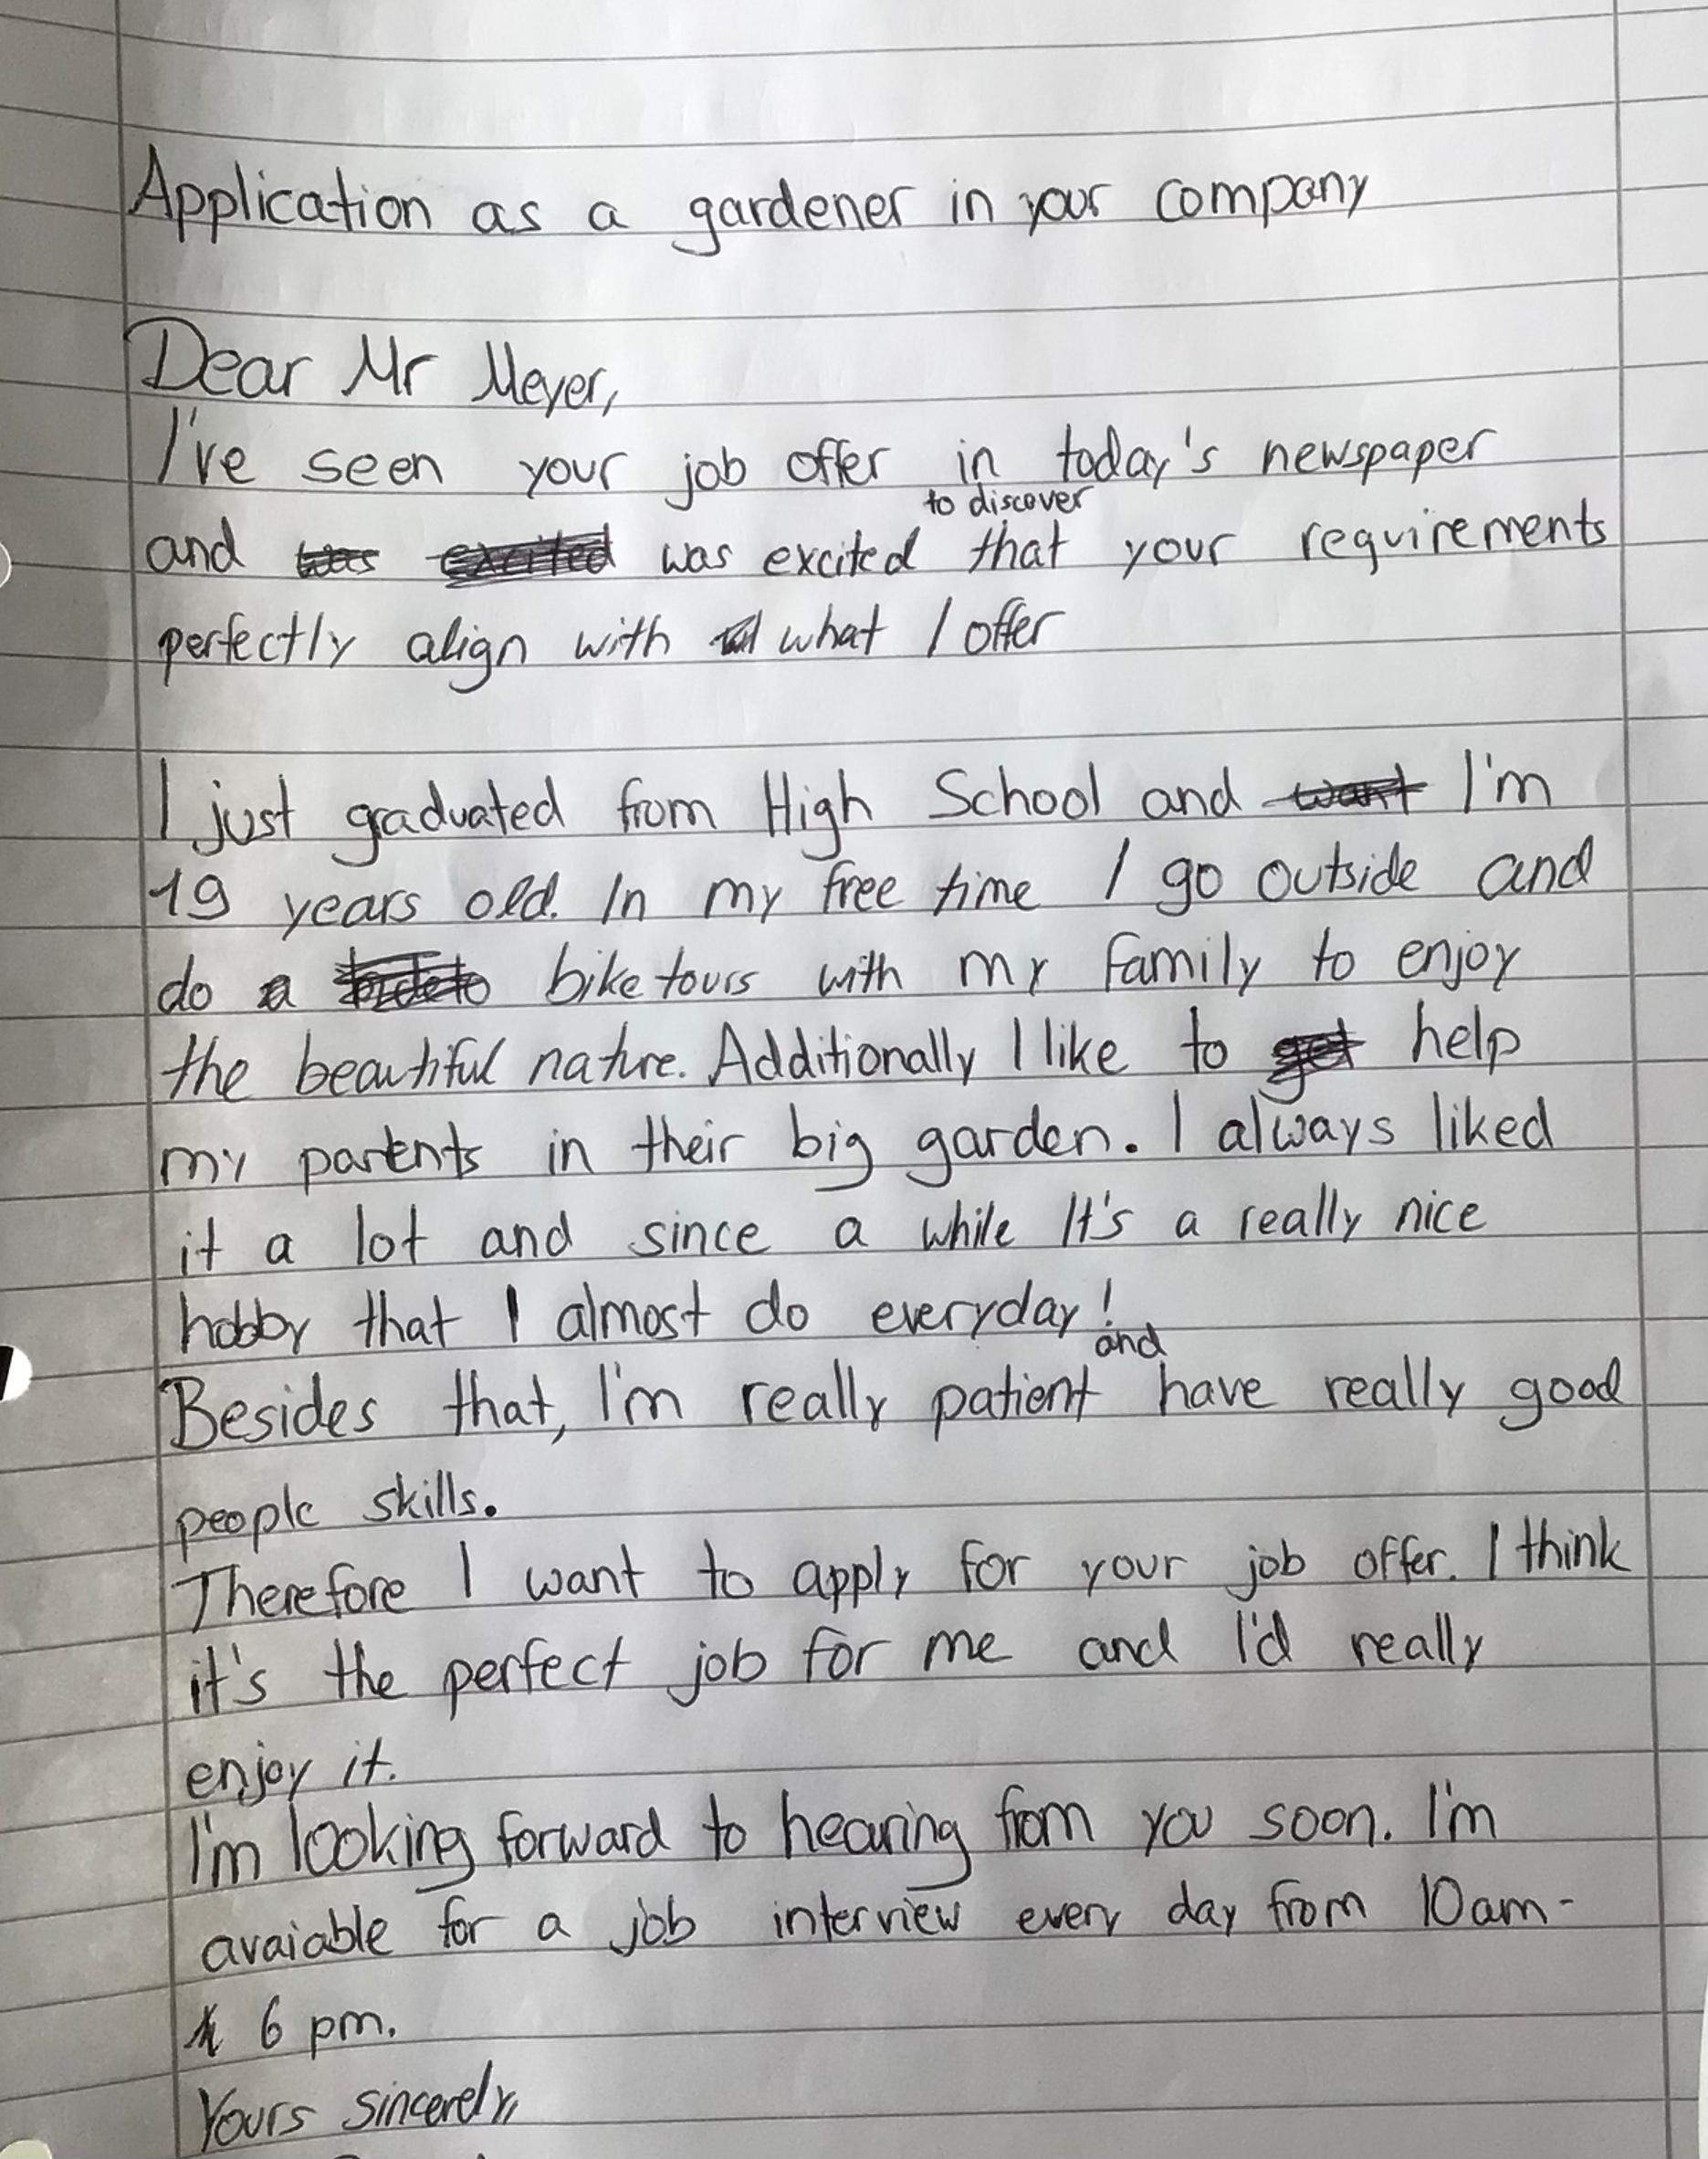 Application as a gardener in your company
Dear Mr Meyer,
I've seen your job offer in today's newspaper
to discover
and was excited was excited that your requirements
perfectly align with what I offer
I just graduated from High School and want I'm
19 years old. In my free time I go outside and
do a bike tours with my family to enjoy
the beautiful nature. Additionally I like to get help
my parents in their big garden. I always liked
it a lot and since a while It's a really nice
hobby that I almost do everyday!
and
Besides that, I'm really patient have really good
people skills.
Therefore I want to apply for your job offer. I think
it's the perfect job for me and I'd really
enjoy it.
I'm looking forward to hearing from you soon. I'm
avaiable for a job interview every day from 10am-
6 pm.
Yours sincerely,